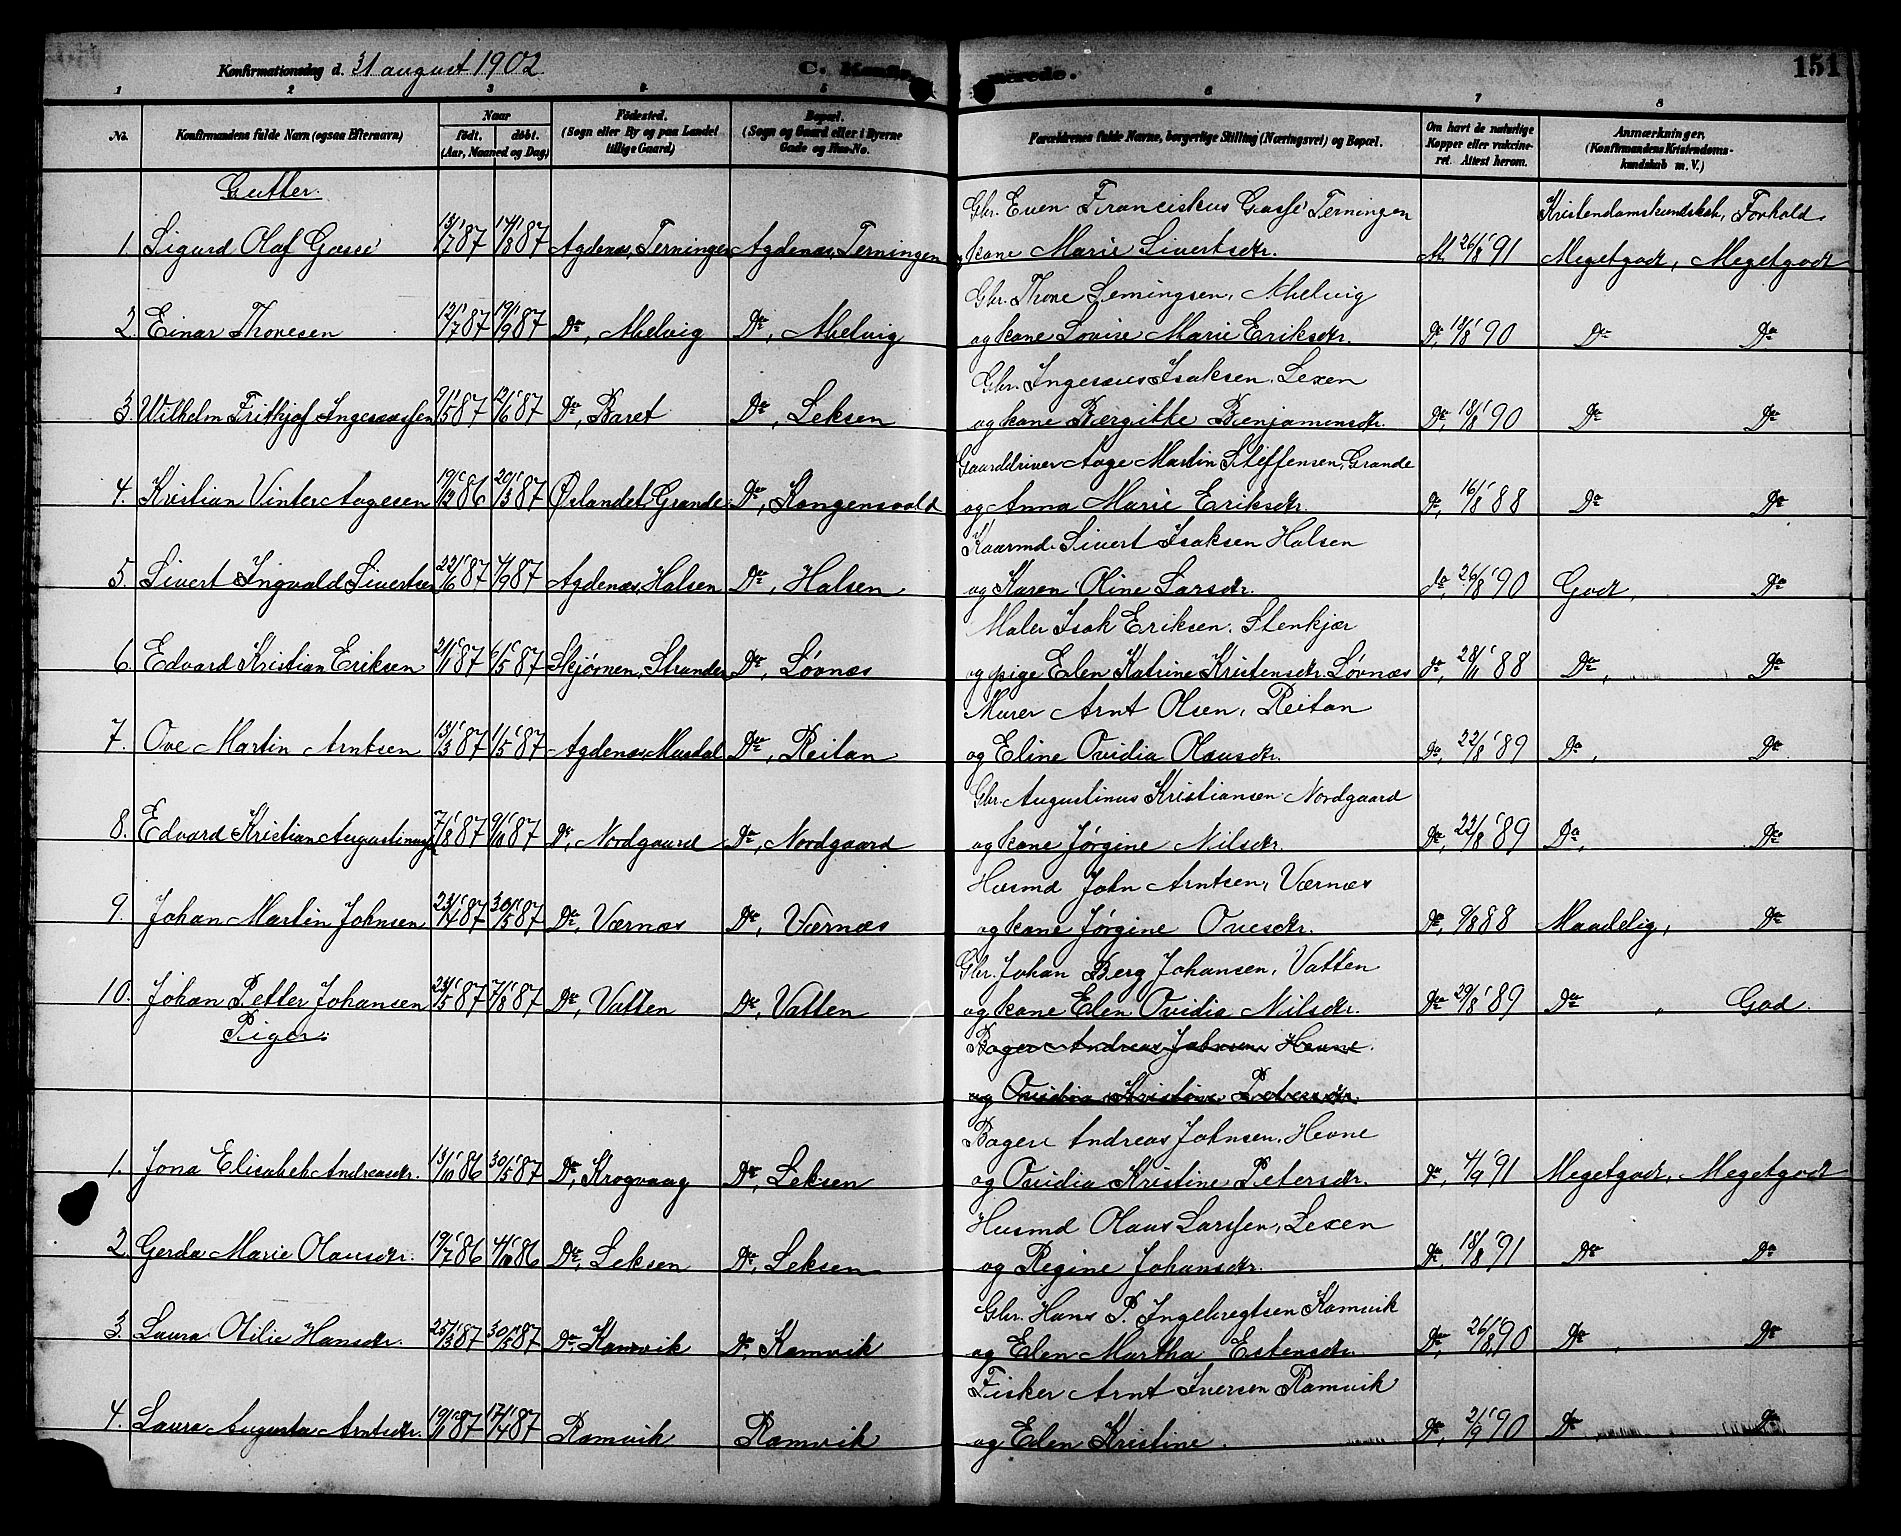 Konfirmationsdag d. 31 august 1902. C. Konfirmerede. 151
1 2 3 4 5 6 7 8
No. Konfirmandens fulde Navn (ogsaa Efternavn) Naar født. døbt. (Aar, Maaned og Dag) Fødested. (Sogn eller By og paa Landet tillige Gaard) Bopæl. (Sogn og Gaard eller i Byerne Gade og Hus-No. Forældrenes fulde Navne, borgerlige Stilling (Næringsvei) og Bopæl. Om havt de naturlige Kopper eller vaccineret. Attest herom. Anmærkninger. (Konfirmandens Kristendomskundskab m. V.)
Gutter.
Gbr. Even Franciskus Gasse Terningen Kristendomskundskab, Forhold
1. Sigurd Olaf Gasse 13/7 87 14/8 87 Agdenes, Terningen Agdenes, Terningen kone Marie Sivertsdtr. At. 26/8 91 Megetgodt, Megetgodt
Gbr. Thore Lemingsen, Mælvig
2. Einar Thoresen 12/7 87 19/9 87 Do, Mælvig Do, Mælvig og kone Lovise Marie Eriksdtr. Do, 18/8 90 Do Do
Gbr. Ingesæus Isaksen, Lexen
3 Wilhelm Frithjof Ingesæussen 7/5 87 12/6 87 Do, Baret Do, Leksen og kone Bergitte Benjaminsdtr. Do, 18/8 90 Do Do
Gaarddriver Aage Martin Steffensen, Grande
4. Kristian Vinter Aagesen 19/12 86 20/3 87 Ørlandet, Grande Do, Kongensvold og Anna Marie Eriksdtr. Do, 16/8 88 Do Do
Kaarmd. Sivert Isaksen Halsen
5. Sivert Ingvald Sivertsen 22/6 87 4/9 87 Agdenes, Halsen Do, Halsen og Karen Oline Larsdtr. do, 26/8 90 Godt, Do
Maler Isak Eriksen, Stenkjær
6. Edvard Kristian Eriksen 21/1 87 6/5 87 Skjørnen, Stranden Do, Løvnæs og pige Elen Katrine Kristensdtr. Løvnæs do, 28/11 88 Do, Do
Murer Arnt Olsen, Reitan
7. Ove Martin Arntsen 13/3 87 1/5 87 Agdenes, Musdal Do, Reitan og Eline Ovidia Olausdtr. Do, 22/8 89 Do, Do
Gbr. Augustinus Kristiansen Nordgaard
8. Edvard Kristian Augustinus 7/8 87 9/10 87 Do, Nordgaard Do, Nordgaard og kone Jørgine Nilsdtr. Do, 22/8 89 Do, Do
Husmd John Arntsen, Værnæs
9. Johan Martin Johnsen 23/4 87 30/5 87 Do, Værnæs Do, Værnæs og kone Jørgine Ovesdtr. Do, 9/8 88 Maadelig, Do
Gbr. Johan Berg Johansen, Vatten
10. Johan Petter Johansen 23/5 87 7/8 87 Do, Vatten Do, Vatten og kone Elen Ovidia Nilsdtr. Do 29/8 89 Do " God.
Piger.
Bager Andreas Johnsen Hevne
og Ovidia Kristine Petersdtr.
Bager Andreas Johnsen, Hevne
1. Jona Elisabet Andreasdtr. 13/10 86 30/5 87 Do, Krogvaag Do, Leksen og Ovidia Kristine Petersdtr. do, 4/9 91 Megetgodt, Megetgodt
Husmd Olaus Larssen, Lexen
2. Gerda Marie Olausdtr. 19/7 86 4/10 86 Do, Leksen Do, Leksen og Regine Johansdtr. Do, 18/8 91 Do Do
Gbr. Hans P. Ingebregtsen Ramvik
3. Laura Otilie Hansdtr. 25/3 87 30/5 87 Do, Ramvik Do, Ramvik og Elen Martha Estensdtr. Do, 26/8 90 Do, Do
Fisker Arnt Iversen Ramvik
4. Laura Augusta Arntsdtr. 19/1 87 17/4 87 Ramvik Ramvik og Elen Kristine. Do, 2/9 90 Do, Do